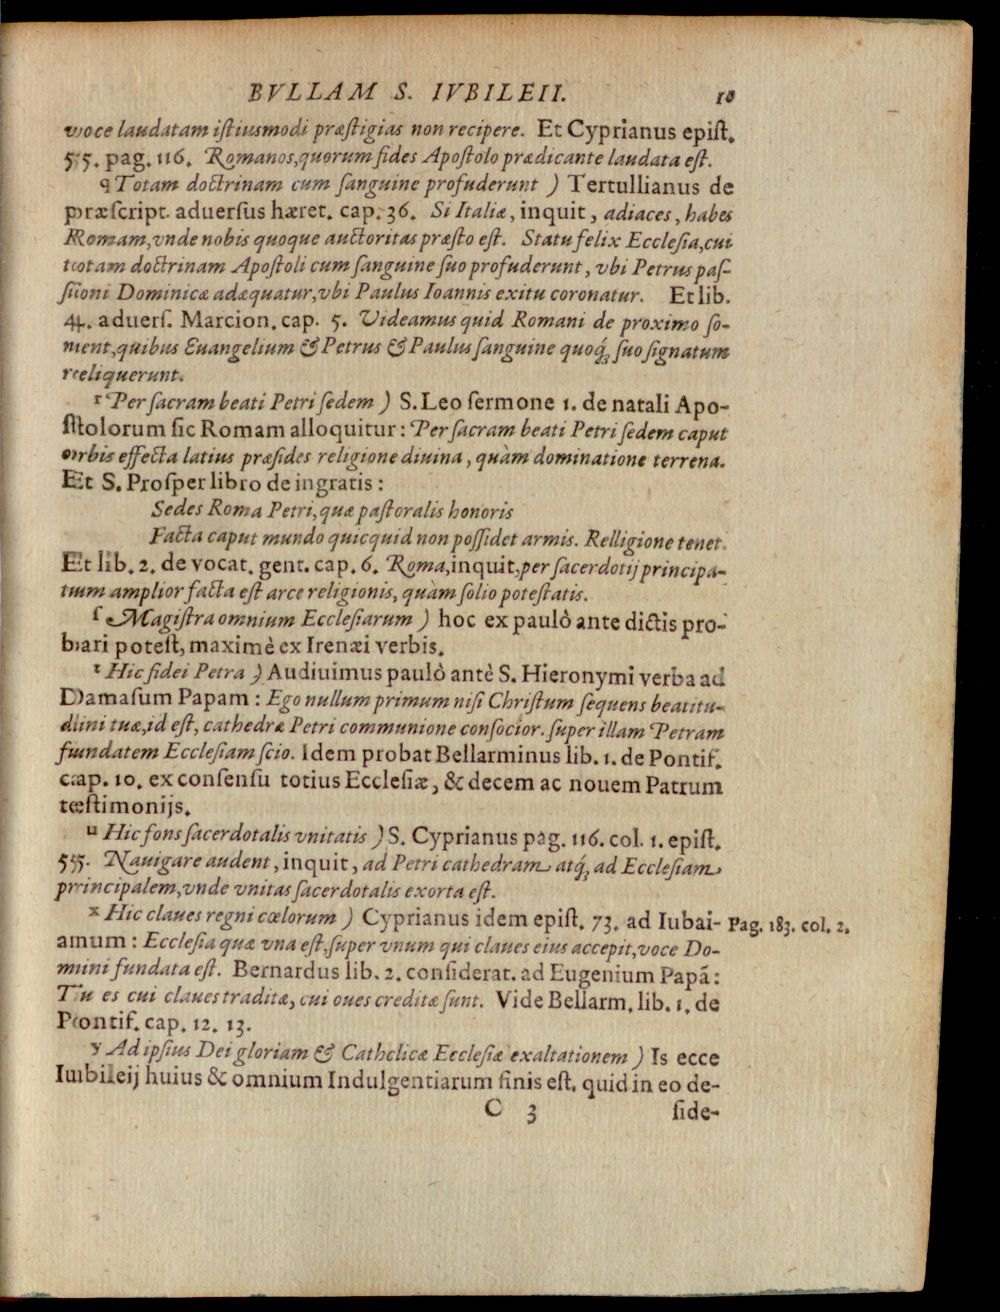 BVLLAM S. IVBILEII. 10
voce laudatam istiusmodi præstigias non recipere. Et Cyprianus epist.
55. pag. 116. Romanos, quorum fides Apostolo prædicante laudata est.
q Totam doctrinam cum sanguine profuderunt ) Tertullianus de
præscript. aduersus hæret. cap. 36. Si Italiæ, inquit, adiaces, habes
Romam, vnde nobis quoque auctoritas præsto est. Statu felix Ecclesia, cui
totam doctrinam Apostoli cum sanguine suo profuderunt, vbi Petrus pas-
sioni Dominicæ adæquatur, vbi Paulus Ioannis exitu coronatur. Et lib.
4. aduers. Marcion. cap. 5. Videamus quid Romani de proximo so-
nent, quibus Euangelium & Petrus & Paulus sanguine quoq́; suo signatum
reliquerunt.
r Per sacram beati Petri sedem ) S. Leo sermone 1. de natali Apo-
stolorum sic Romam alloquitur: Per sacram beati Petri sedem caput
orbis effecta latius præsides religione diuina, quàm dominatione terrena.
Et S. Prosper libro de ingratis:
Sedes Roma Petri, quæ pastoralis honoris
Facta caput mundo quicquid non possidet armis. Relligione tenet.
Et lib. 2. de vocat. gent. cap. 6. Roma, inquit, per sacerdotij principa-
tum amplior facta est arce religionis, quàm solio potestatis.
ſ Magistra omnium Ecclesiarum ) hoc ex paulò ante dictis pro-
bari potest, maximè ex Irenæi verbis.
t Hic fidei Petra ) Audiuimus paulò antè S. Hieronymi verba ad
Damasum Papam: Ego nullum primum nisi Christum sequens beatitu-
dini tuæ, id est, cathedræ Petri communione consocior. super illam Petram
fundatem Ecclesiam scio. Idem probat Bellarminus lib. 1. de Pontif.
cap. 10. ex consensu totius Ecclesiæ, & decem ac nouem Patrum
testimonijs.
u Hic fons sacerdotalis vnitatis ) S. Cyprianus pag. 116. col. 1. epist.
55. Nauigare audent, inquit, ad Petri cathedram atq́; ad Ecclesiam
principalem, vnde vnitas sacerdotalis exorta est.
x Hic claues regni cœlorum ) Cyprianus idem epist. 73. ad Iubai- Pag. 183. col. 2.
anum: Ecclesia quæ vna est, super vnum qui claues eius accepit, voce Do-
mini fundata est. Bernardus lib. 2. considerat. ad Eugenium Papã:
Tu es cui claues traditæ, cui oues creditæ sunt. Vide Bellarm. lib. 1. de
Pontif. cap. 12. 13.
y Ad ipsius Dei gloriam & Catholicæ Ecclesiæ exaltationem ) Is ecce
Iubileij huius & omnium Indulgentiarum finis est. quid in eo de-
C 3 side-